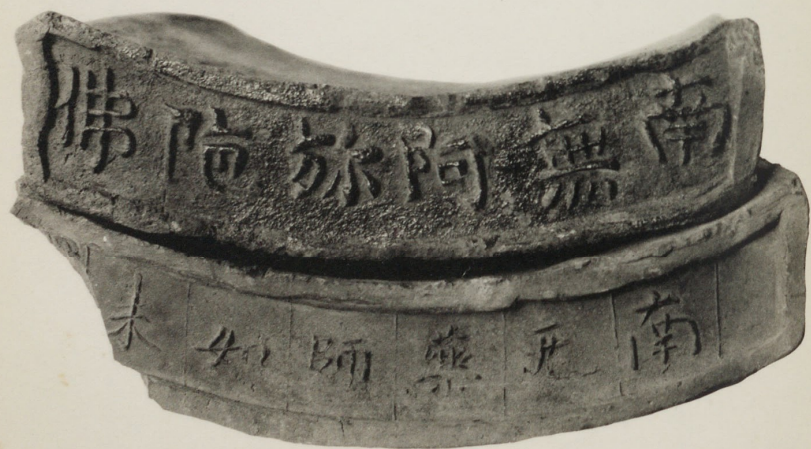 南無阿弥陀佛
南无薬師如来